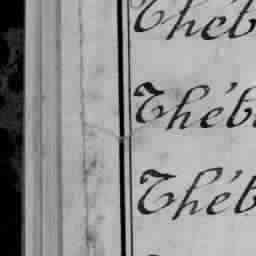 Théb
Théb
Théb